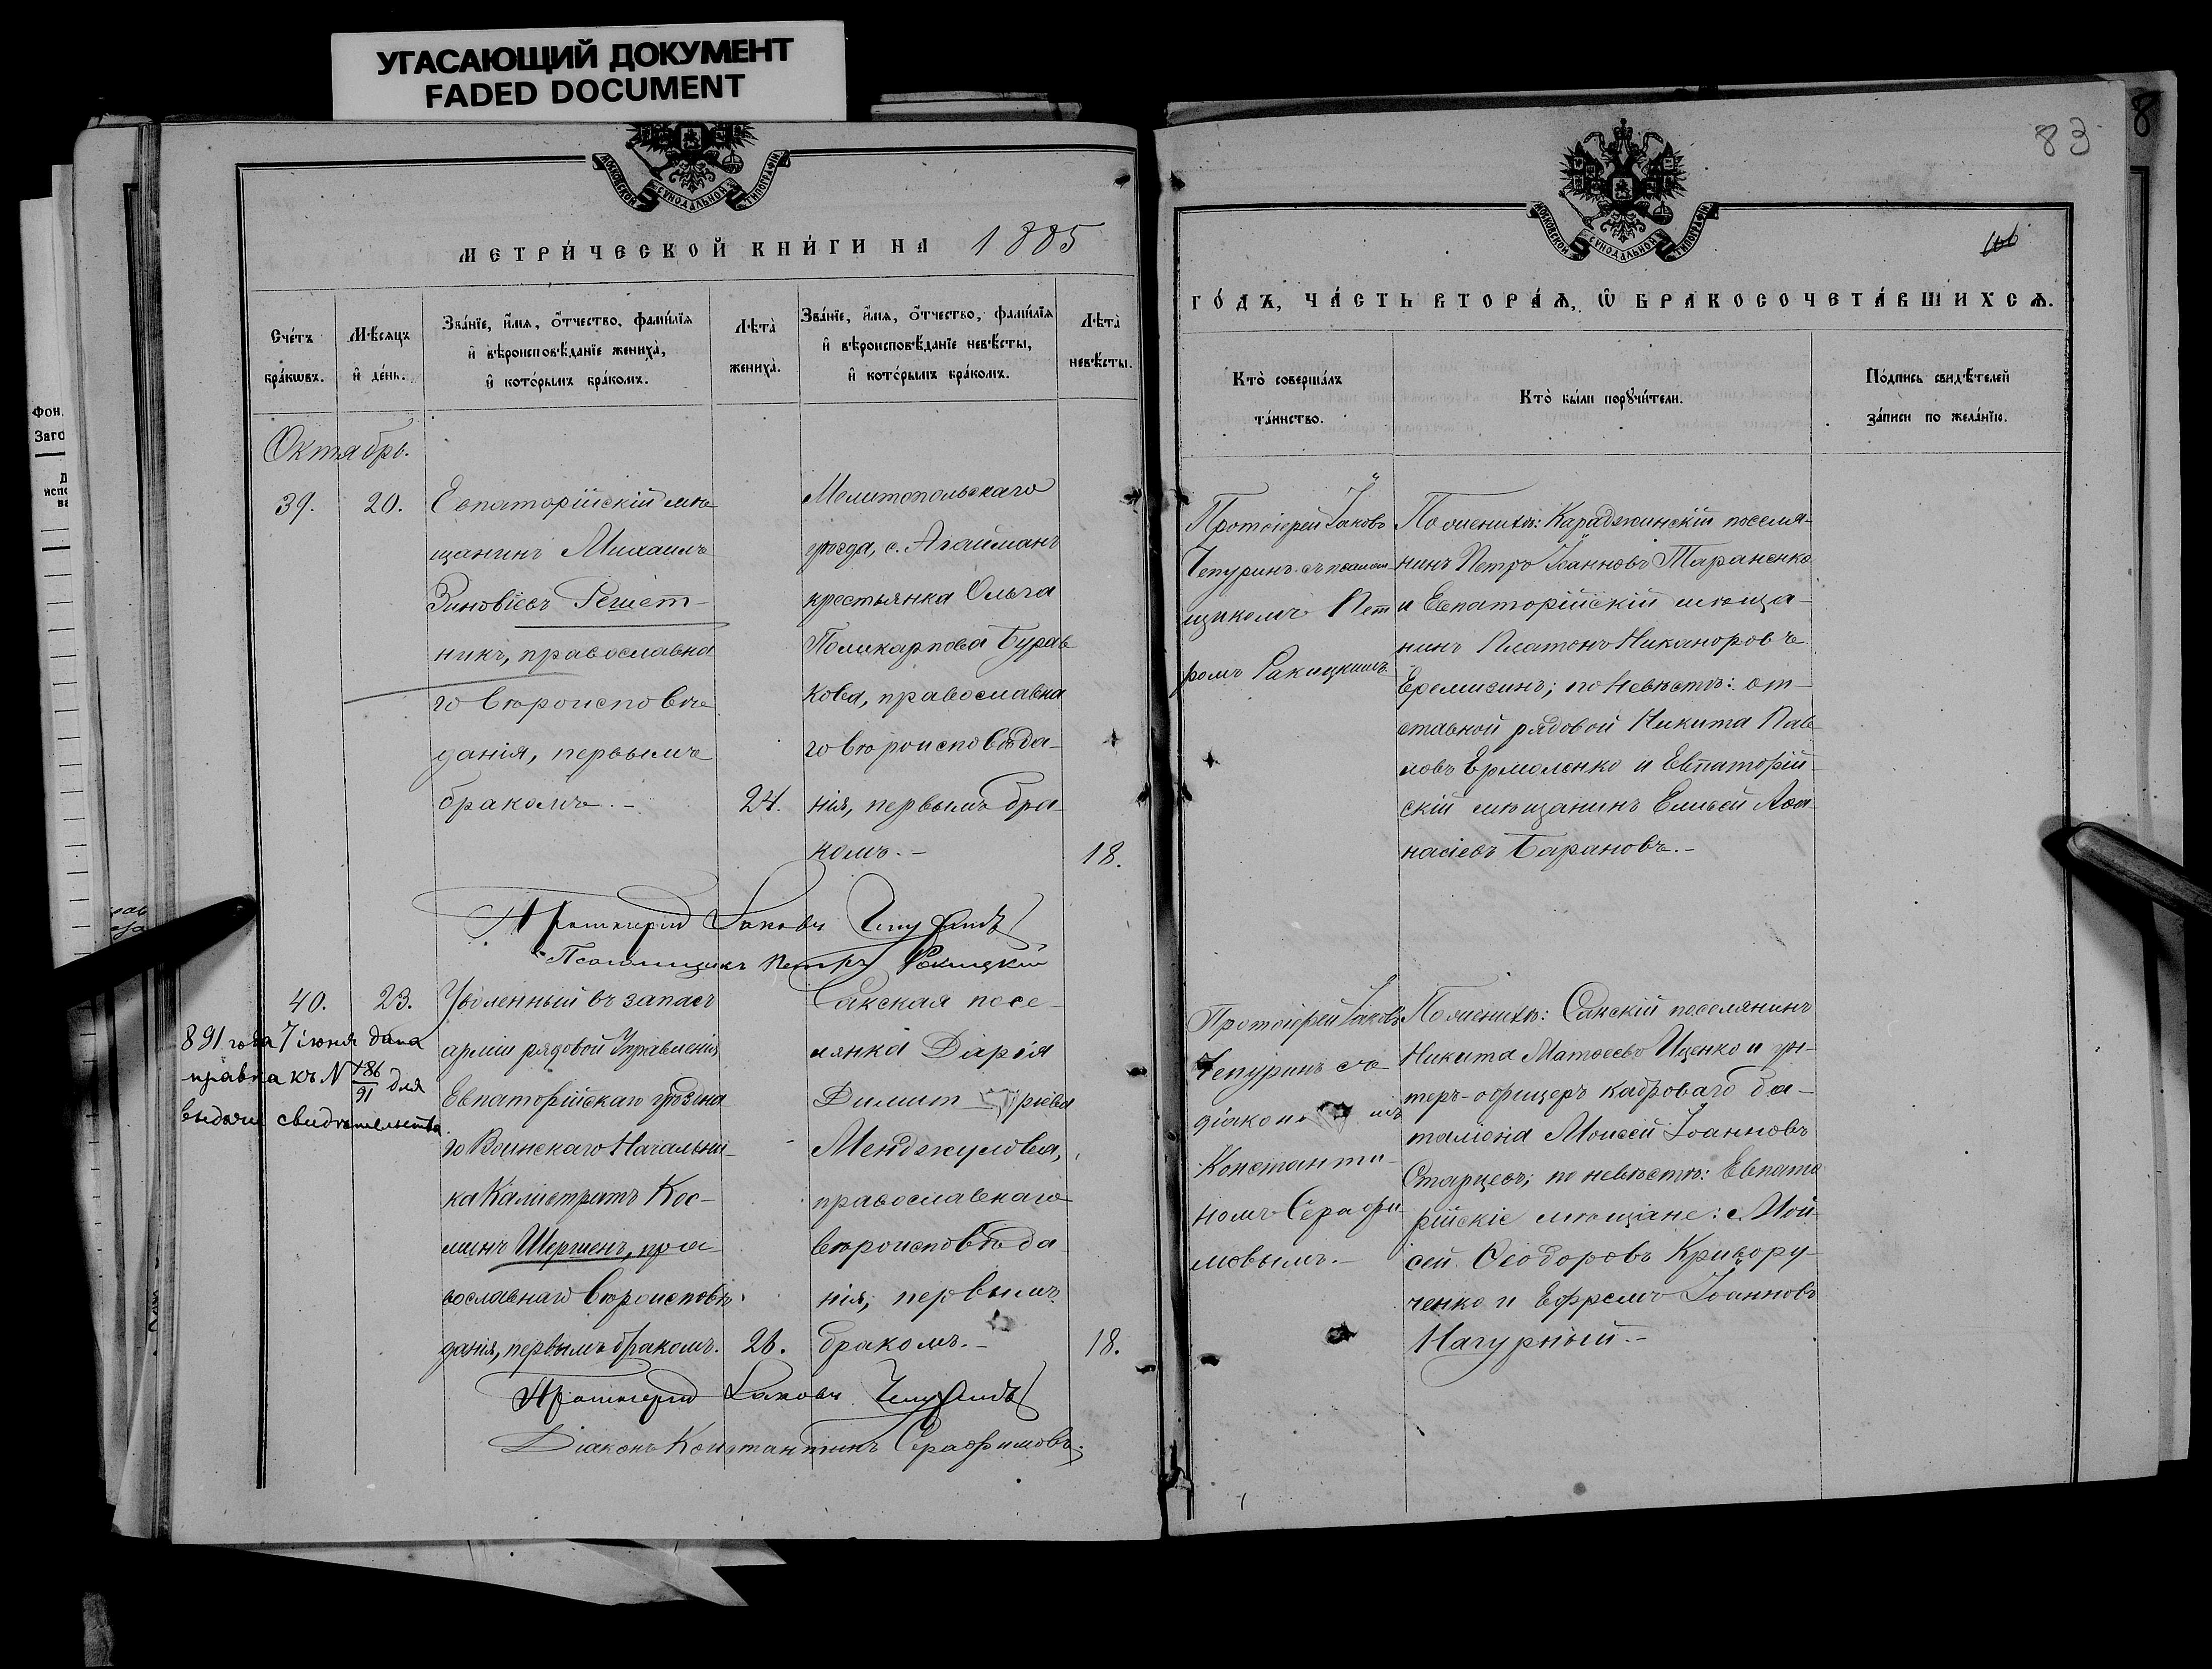 УГАСАЮЩИЙ ДОКУМЕНТ
FADED DOCUMENT
МОСКОВСКОЙ СѴНОДАЛЬНОЙ ТИПОГРАФІИ
МЕТРИ́ЧЕСКОЙ КНИ́ГИ НА 1885
Сче́тъ
бра́кѡвъ.
Мѣ́сяцъ
и҆ де́нь.
Зва́нїе, и҆́мя, ѻ҆́тчество, фами́лїя
и҆ вѣроисповѣ́данїе жениха̀,
и҆ кото́рымъ бра́комъ.
Лѣта̀
жениха̀.
Зва́нїе, и҆́мя, ѻ҆́тчество, фами́лїя
и҆ вѣроисповѣ́данїе невѣ́сты,
и҆ кото́рымъ бра́комъ.
Лѣта̀
невѣ́сты.
Октябрь.
39.
20.
Евпаторійскій мѣ
щанинъ Михаилъ
Зиновіевъ Решет-
никъ, православна
го вѣроисповѣ
данія, первымъ
бракомъ.-
24.
Мелитопольскаго
уѣзда, с. Агайманъ
крестьянка Ольга
Поликарпова Бурав
кова, православна
го вѣроисповѣда-
нія, первымъ бра-
комъ.-
18.
Протоіерей Іаковъ Чепуринъ
Псаломщикъ Петръ Ракицкій
40.
23.
Уволенный въ запасъ
арміи рядовой Управленія
Евпаторійскаго уѣздна
го Воинскаго Начальни-
ка Калистратъ Кос-
минъ Шершень, пра-
вославнаго вѣроисповѣ-
данія, первымъ бракомъ.
26.
Сакская посе-
лянка Дарія
Димит ріева
Менджулова,
православнаго
вѣроисповѣда-
нія, первымъ
бракомъ.-
18.
891 года 7 іюня дана
правка къ N 186/91 для
выдачи свидѣтельства
Протоіерей Іаковъ Чепуринъ
Діаконъ Константинъ Серафимовъ.
83
8
МОСКОВСКОЙ СѴНОДАЛЬНОЙ ТИПОГРАФІИ
ГО́ДЪ, ЧА́СТЬ ВТОРА́Ѧ, Ѽ БРАКОСОЧЕТА́ВШИХСѦ.
Кто̀ соверша́лъ
та́инство.
Кто̀ бы́ли порꙋчи́тели.
По́дпись свидѣ́телей
за́писи по жела́нїю.
Протоіерей Іаковъ
Чепуринъ съ псалом-
щикомъ Пет
ромъ Ракицкимъ
По женихѣ: Караджинскій поселя-
нинъ Петръ Іоанновъ Тараненко
и Евпаторійскій мѣща-
нинъ Платонъ Никаноровъ
Еремизинъ; по невѣстѣ: от-
ставной рядовой Никита Пав
ловъ Ермоленко и Евпаторій-
скій мѣщанинъ Елисей Аѳа-
насіевъ Барановъ.-
Протоіерей Іаковъ
Чепуринъ съ
діакономъ
Константи-
номъ Серафи-
мовымъ.-
По женихѣ: Сакскій поселянинъ
Никита Матѳеевъ Иценко и ун-
теръ-офицеръ кадроваго ба-
таліона Моисей Іоанновъ
Старцевъ; по невѣстѣ: Евпато
рійскіе мѣщане: Мои
сей Ѳеодоровъ Кривору-
ченко и Ефремъ Іоанновъ
Нагурный.-
Фон.
Заго